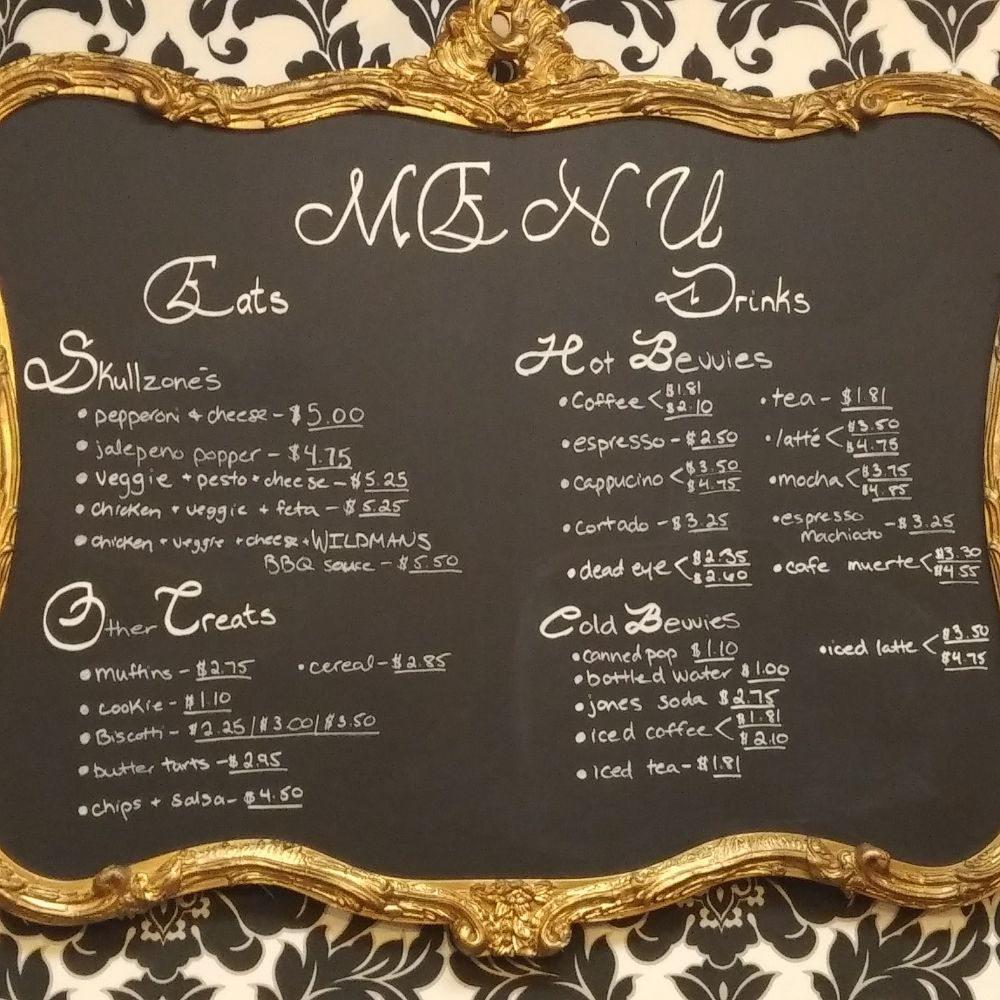 MENU
Eats
Skullzone's
• pepperoni + cheese - $5.00
• jalepeno popper - $4.75
• veggie + pesto + cheese - $5.25
• chicken + veggie + feta - $5.25
• chicken + veggie + cheese + WILDMANS
BBQ sauce - $5.50
Other Treats
• muffins - $2.75 • cereal - $2.85
• cookie - $1.10
• Biscotti - $2.25 / $3.00 / $3.50
• butter tarts - $2.95
• chips + salsa - $4.50
Drinks
Hot Bevvies
• Coffee < $1.81 $2.10 • tea - $1.81
• espresso - $2.50 • latté < $3.50 $4.75
• cappucino < $3.50 $4.75 • mocha < $3.75 $4.85
• cortado - $3.25 • espresso machiato - $3.25
• dead eye < $2.35 $2.60 • cafe muerte < $3.30 $4.55
Cold Bevvies
• canned pop $1.10 • iced latte < $3.50 $4.75
• bottled water $1.00
• jones soda $2.75
• iced coffee < $1.81 $2.10
• iced tea - $1.81